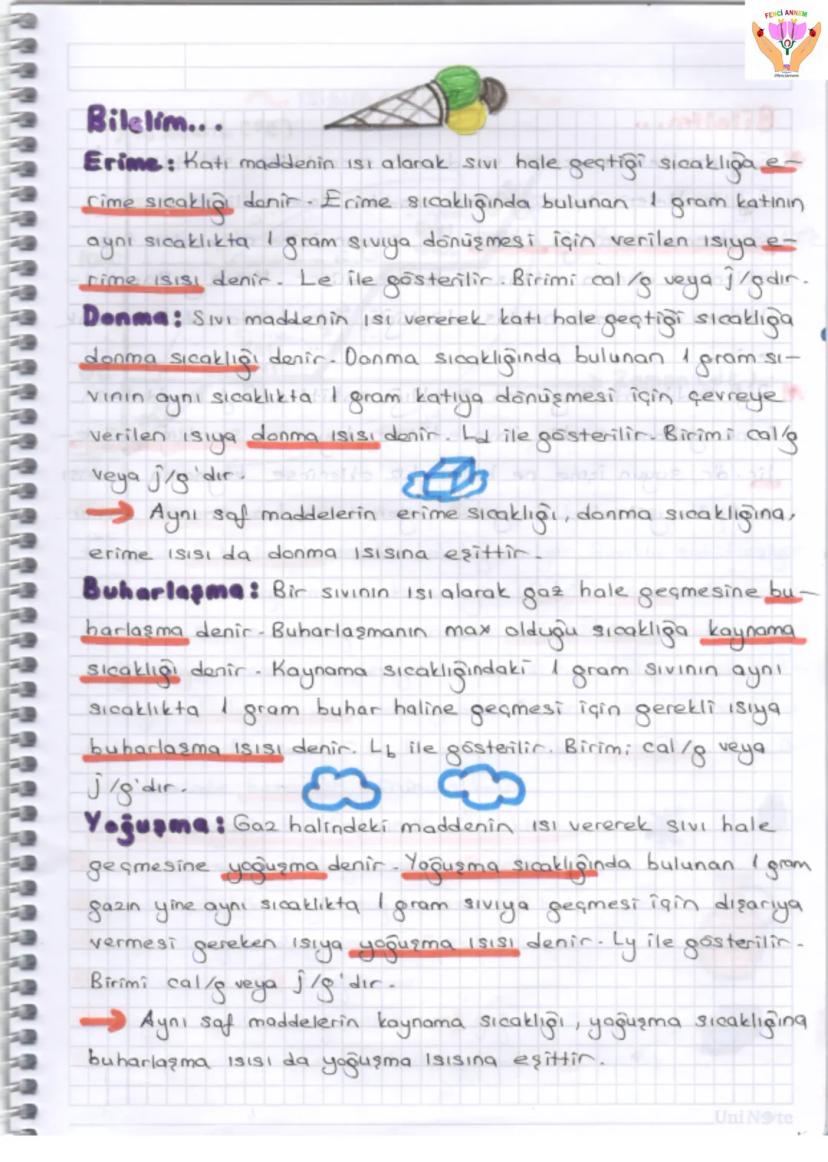 FENCİ ANNEM
Bilelim...
Erime: Katı maddenin ısı alarak sıvı hale geçtiği sıcaklığa e-
rime sıcaklığı denir. Erime sıcaklığında bulunan 1 gram katının
aynı sıcaklıkta 1 gram sıvıya dönüşmesi için verilen ısıya e-
rime ısısı denir. Le ile gösterilir. Birimi cal/g veya j/gdır.
Donma: Sıvı maddenin ısı vererek katı hale geçtiği sıcaklığa
donma sıcaklığı denir. Donma sıcaklığında bulunan 1 gram sı-
vının aynı sıcaklıkta 1 gram katıya dönüşmesi için çevreye
verilen ısıya donma ısısı denir. Ld ile gösterilir. Birimi cal/g
veya j/g'dır.
→ Aynı saf maddelerin erime sıcaklığı, donma sıcaklığına,
erime ısısı da donma ısısına eşittir.
Buharlaşma: Bir sıvının ısı alarak gaz hale geçmesine bu-
harlaşma denir. Buharlaşmanın max olduğu sıcaklığa kaynama
sıcaklığı denir. Kaynama sıcaklığındaki 1 gram sıvının aynı
sıcaklıkta 1 gram buhar haline geçmesi için gerekli ısıya
buharlaşma ısısı denir. Lb ile gösterilir. Birimi cal/g veya
j/g'dır.
Yoğuşma: Gaz halindeki maddenin ısı vererek sıvı hale
geçmesine yoğuşma denir. Yoğuşma sıcaklığında bulunan 1 gram
gazın yine aynı sıcaklıkta 1 gram sıvıya geçmesi için dışarıya
vermesi gereken ısıya yoğuşma ısısı denir. Ly ile gösterilir.
Birimi cal/g veya j/g'dır.
→ Aynı saf maddelerin kaynama sıcaklığı, yoğuşma sıcaklığına
buharlaşma ısısı da yoğuşma ısısına eşittir.
UniNote